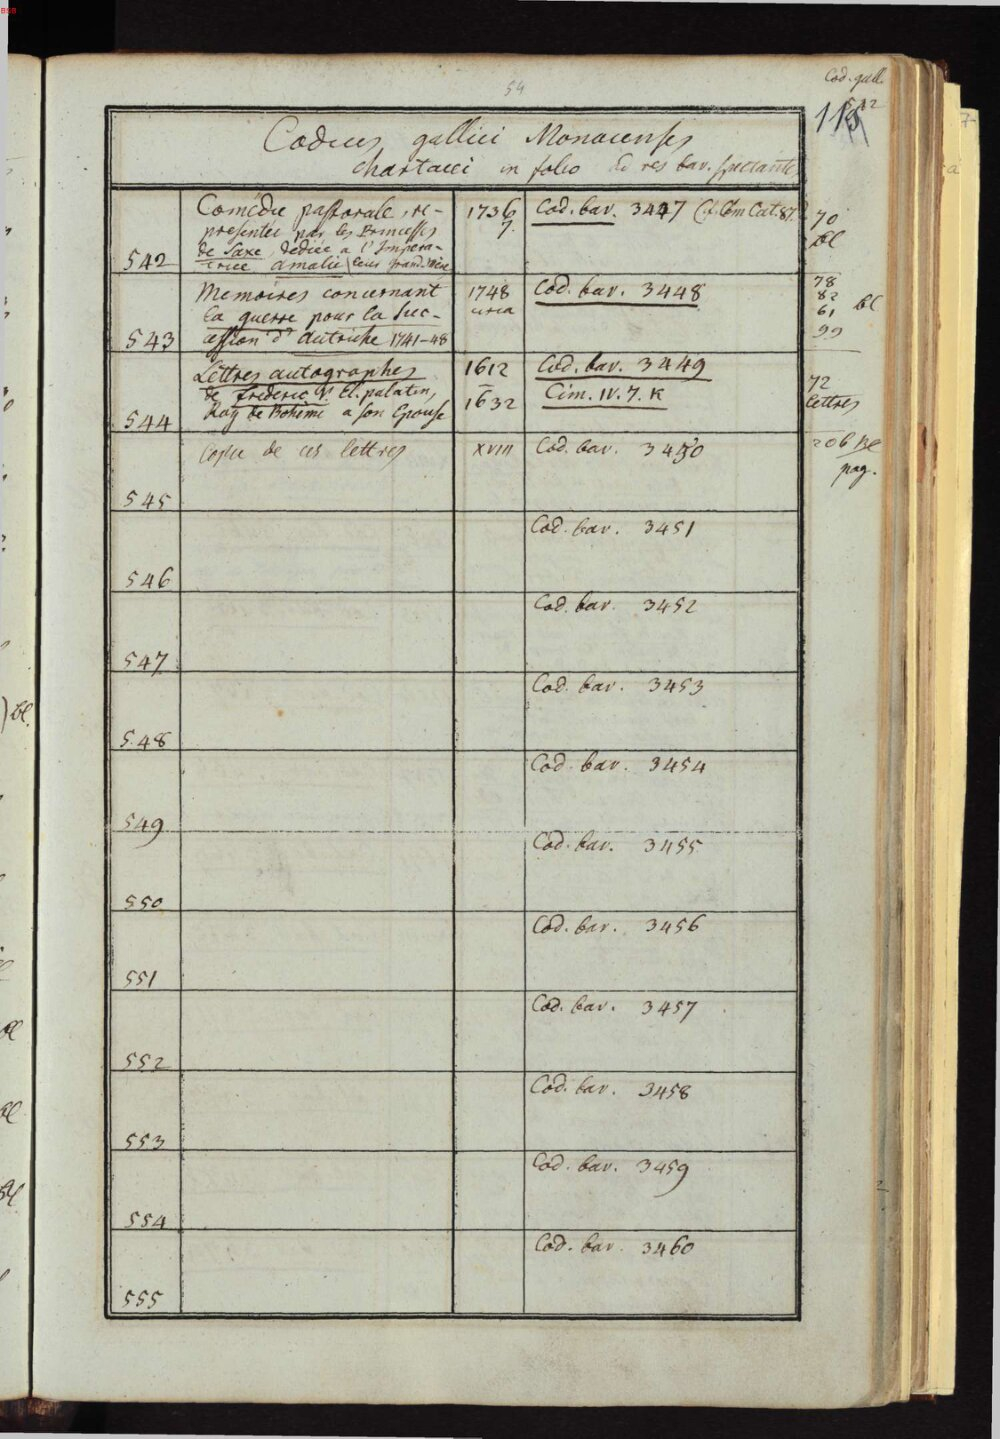 BSB
Cod. gall.
542
54
118
Codices gallici Monacenses
chartacei in folio ad res bav. spectantes
Comédie pastorale, re-
presentée par les Princesses
de Saxe dediée a l'Impera-
trice Amalie leur grand Mère
542
1736
7.
Cod. bav. 3447 (cf. Cim Cat. 87.)
70
Bl
Memoires concernant
la guerre pour la suc-
cession d'Autriche 1741-48
543
1748
circa
Cod. bav. 3448
78
82
61
99
Bl
Lettres autographes
de Frederic V. El. palatin,
Roy de Bohème a son Epouse
544
1612
1632
Cod. bav. 3449
Cim. IV. 7. K
72
lettres
Copie de ces lettres
545
XVIII
Cod. bav. 3450
206 Bl
pag.
546
Cod. bav. 3451
547
Cod. bav. 3452
548
Cod. bav. 3453
549
Cod. bav. 3454
550
Cod. bav. 3455
551
Cod. bav. 3456
552
Cod. bav. 3457
553
Cod. bav. 3458
554
Cod. bav. 3459
555
Cod. bav. 3460